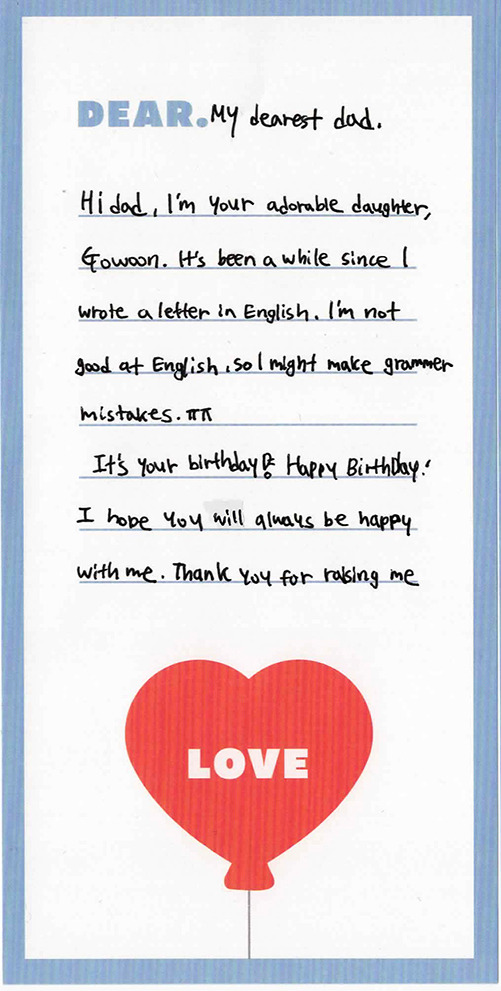 DEAR. My dearest dad.
Hi dad, I'm your adorable daughter,
Gowoon. It's been a while since I
wrote a letter in English. I'm not
good at English, so I might make grammer
mistakes. ㅠㅠ
It's your birthday! Happy BirthDay!
I hope you will always be happy
with me. Thank you for raising me
LOVE